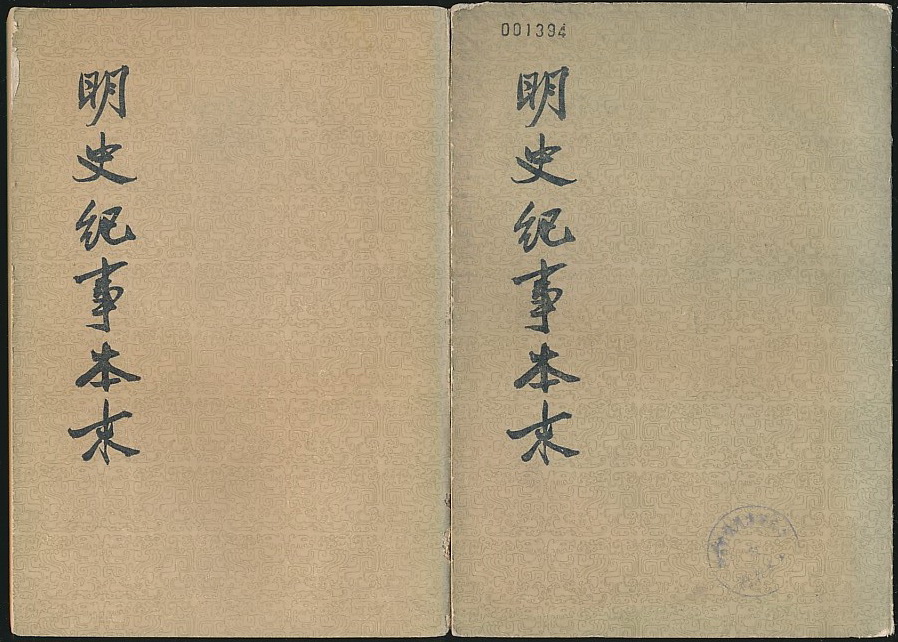 明史紀事本末
001394
明史紀事本末